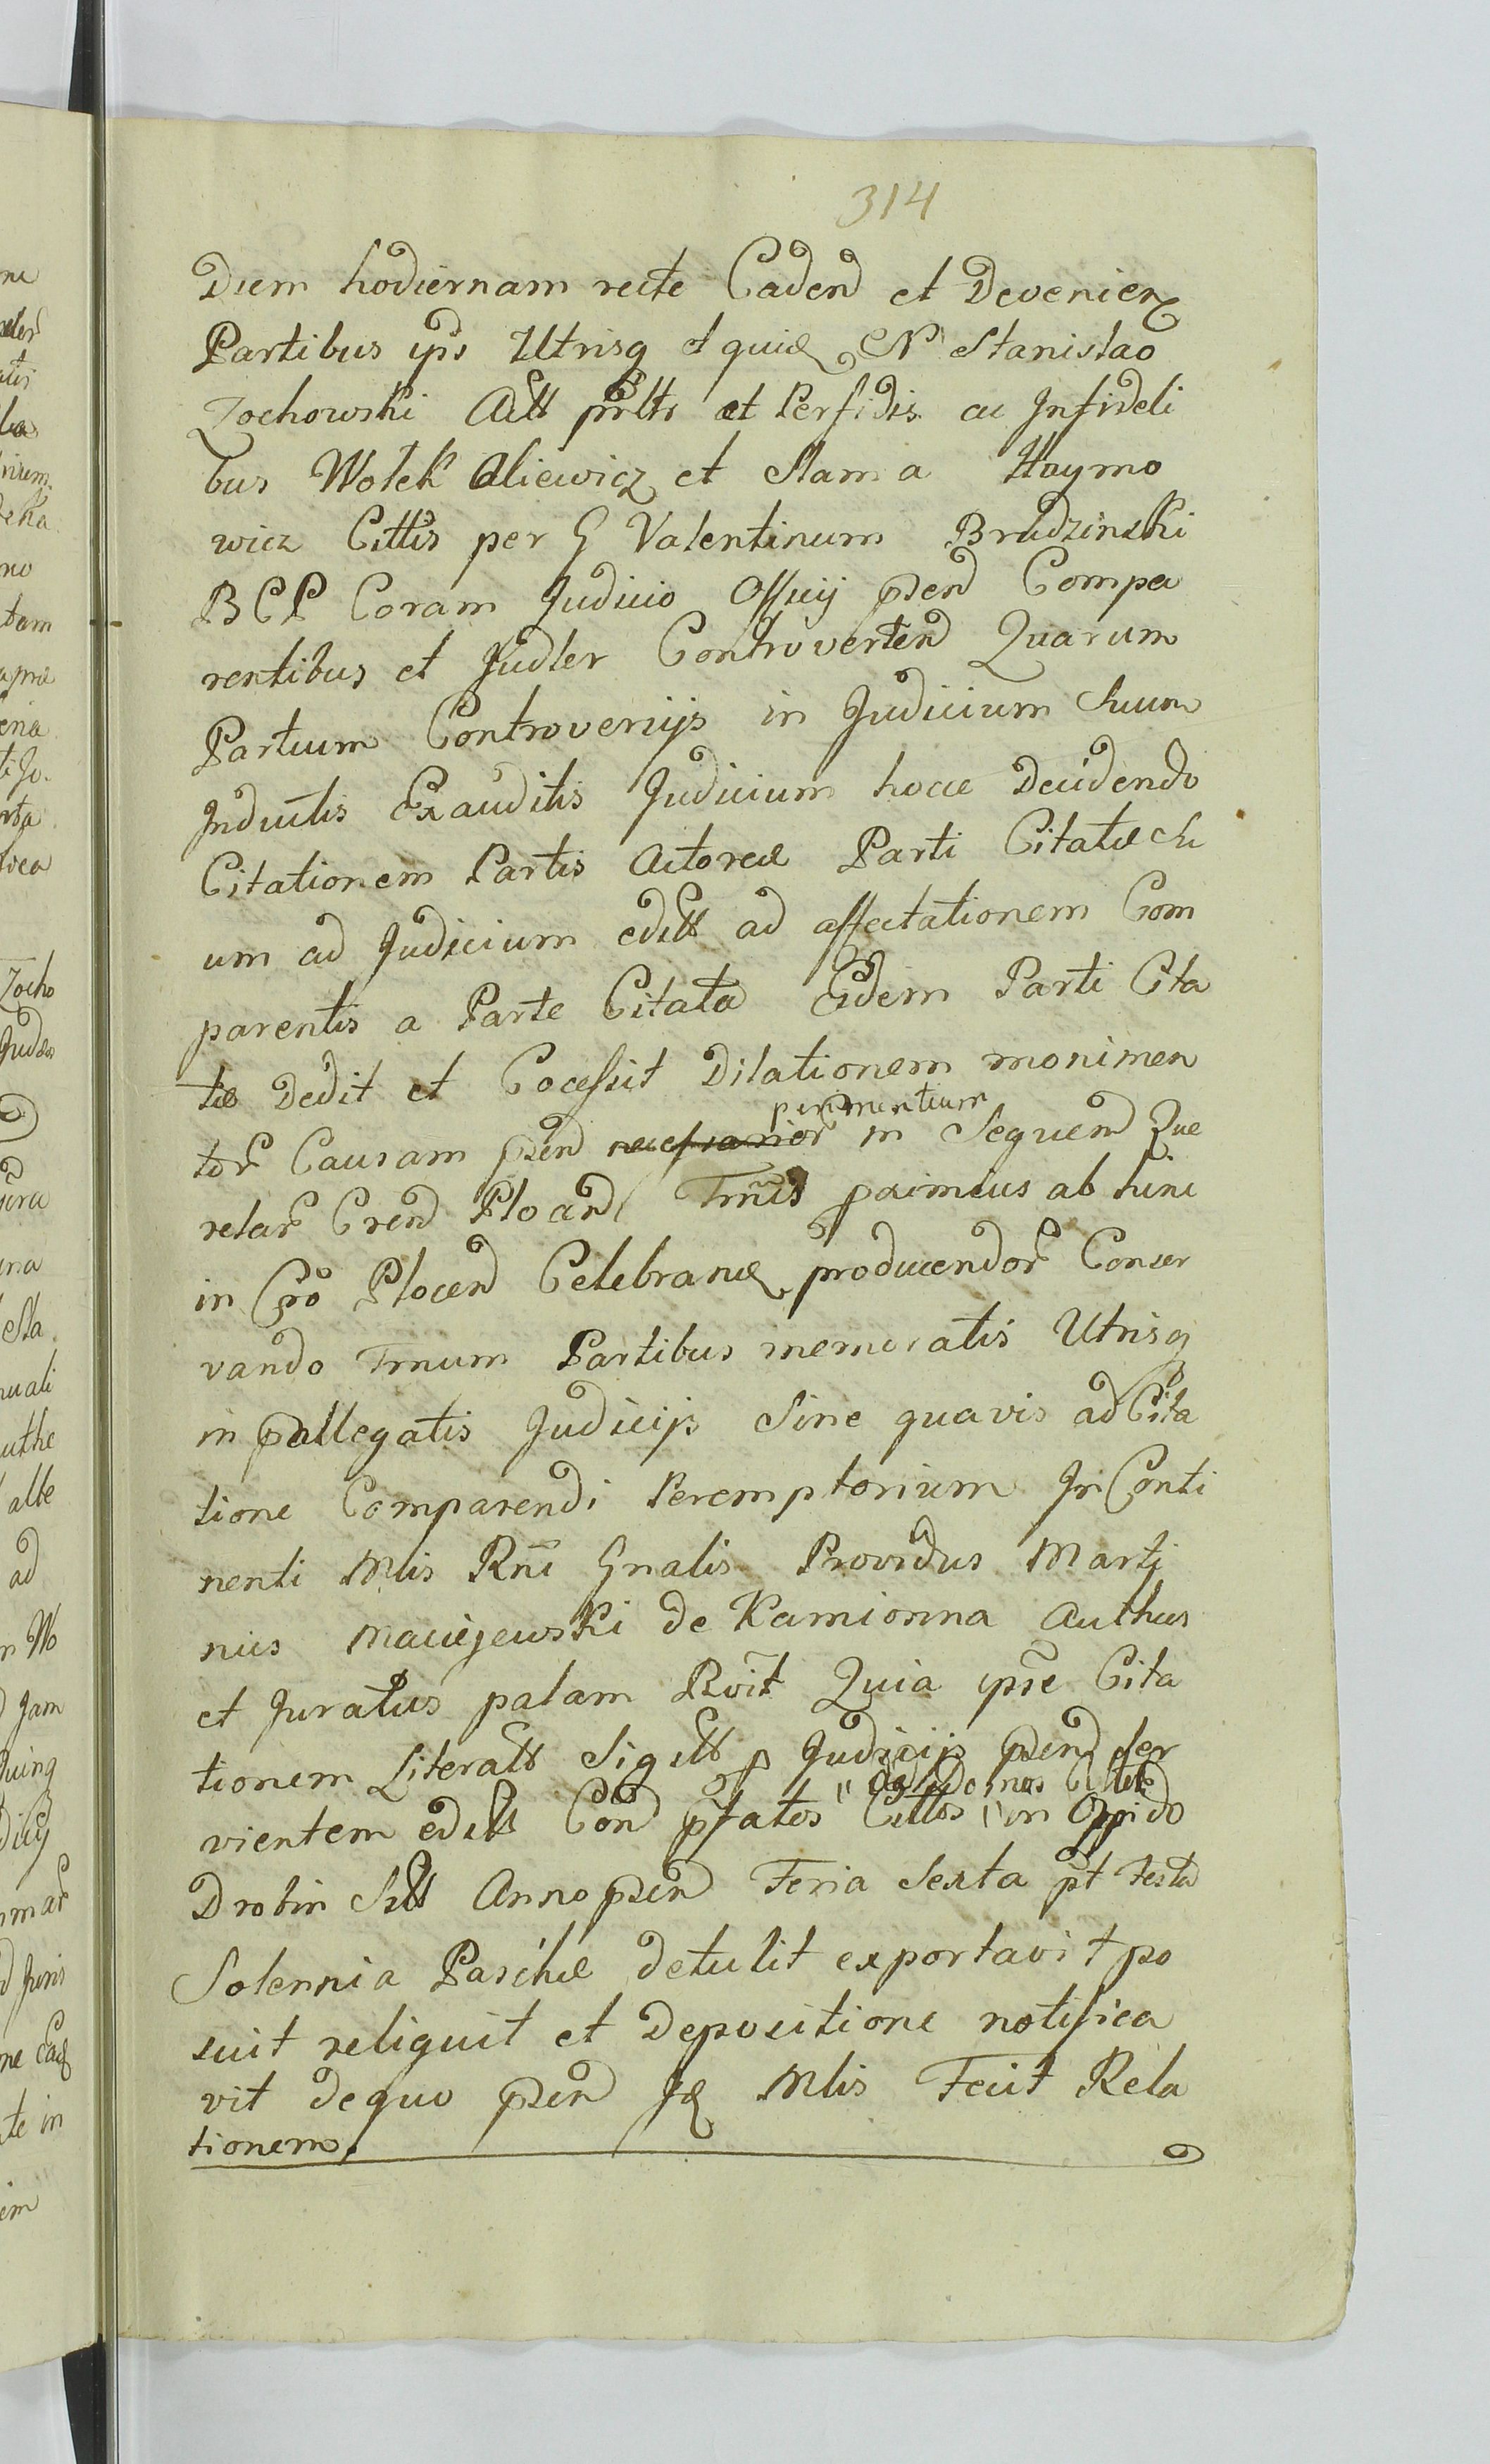 314
Diem hodiernam recte Cadend et Devenien
Partibus ips Utrisq et quid N Stanislao
Zochowski Actt prltr et Perfidis ac Infideli
bus Wolek Aliewicz et Slama Haymo
wicz Cittis per G Valentinum Brudzinski
BCP Coram Judicio Officij psend Compa
rentibus et Judler Controverten Quarum
Partium Controversijs in Judicium Suum
Inductis Exauditis Judicium hocce Decidendo
Citationem Partis Actoreæ Parti Citatæ Su
um ad Judicium editt ad affectationem Com
parentis a Parte Citata Eidem Parti Cita
tæ Dedit et Cocessit Dilationem monimen
tor Causam psend perimentium in Sequend Que
relar Crend Ploand Trmis primius ab hinc
in Cro Plocen Celebrand producendor Conser
vando Trnum Partibus memoratis Utrisq
in pallegatis Judicijs Sine quavis ad Cita
tione Comparendi Peremptorium In Conti
nenti Mlis Rni Gnalis Providus Marti
nus Maciejewski de Kamionna Authus
et Juratus palam Rvit Quia ipse Cita
tionem Literatt Sigitt p Judicijs psend ser
vientem editt Con pfatos Cittos in Oppido
Drobin Sitt Anno psend Feria Sexta pt Festa
Solennia Paschæ detulit exportavit po
suit reliquit et Depositione notifica
vit de quo psen Jd Mlis Fecit Rela
tionem.